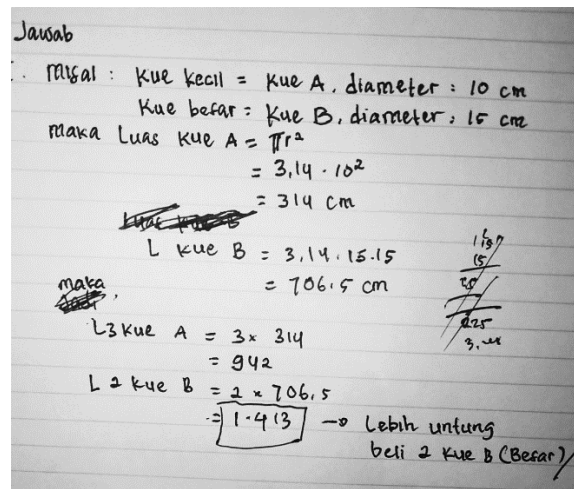 Jawab
. Misal : Kue kecil = Kue A, diameter : 10 cm
Kue besar = Kue B, diameter : 15 cm
Maka Luas Kue A = πr²
= 3,14 . 10²
= 314 cm
L Kue B = 3,14 . 15.15
= 706.5 cm
maka,
L3 Kue A = 3 x 314
= 942
L 2 Kue B = 2 x 706,5
= 1.413 → Lebih untung
beli 2 Kue B (Besar)
15
225